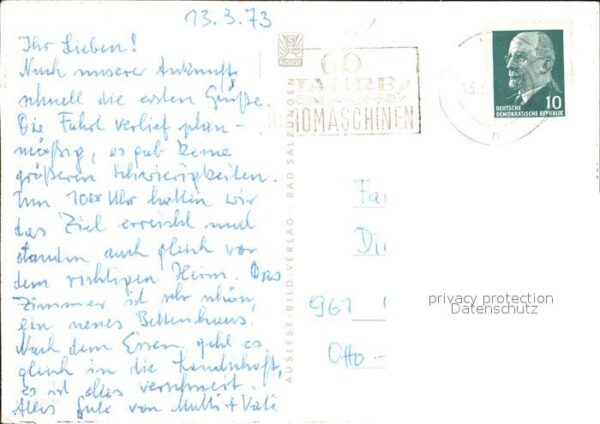 13.3.73
Ihr Lieben!
Nach unserer Ankunft
schnell die ersten Grüße.
Die Fahrt verlief plan-
mäßig, es gab keine
größeren Schwierigkeiten.
Um 1000 Uhr hatten wir
das Ziel erreicht und
standen auch gleich vor
dem richtigen Heim. Das
Zimmer ist sehr schön,
ein neues Bettenhaus.
Nach dem Essen geht es
gleich in die Landschaft,
es ist alles verschneit.
Alles Gute von Mutti + Vati
AUSLESE
AUSLESE-BILD-VERLAG · BAD SALZUNGEN
60
JAHRE
BÜROMASCHINEN
10
DEUTSCHE
DEMOKRATISCHE REPUBLIK
Fa
Di
961
Otto-
privacy protection
Datenschutz